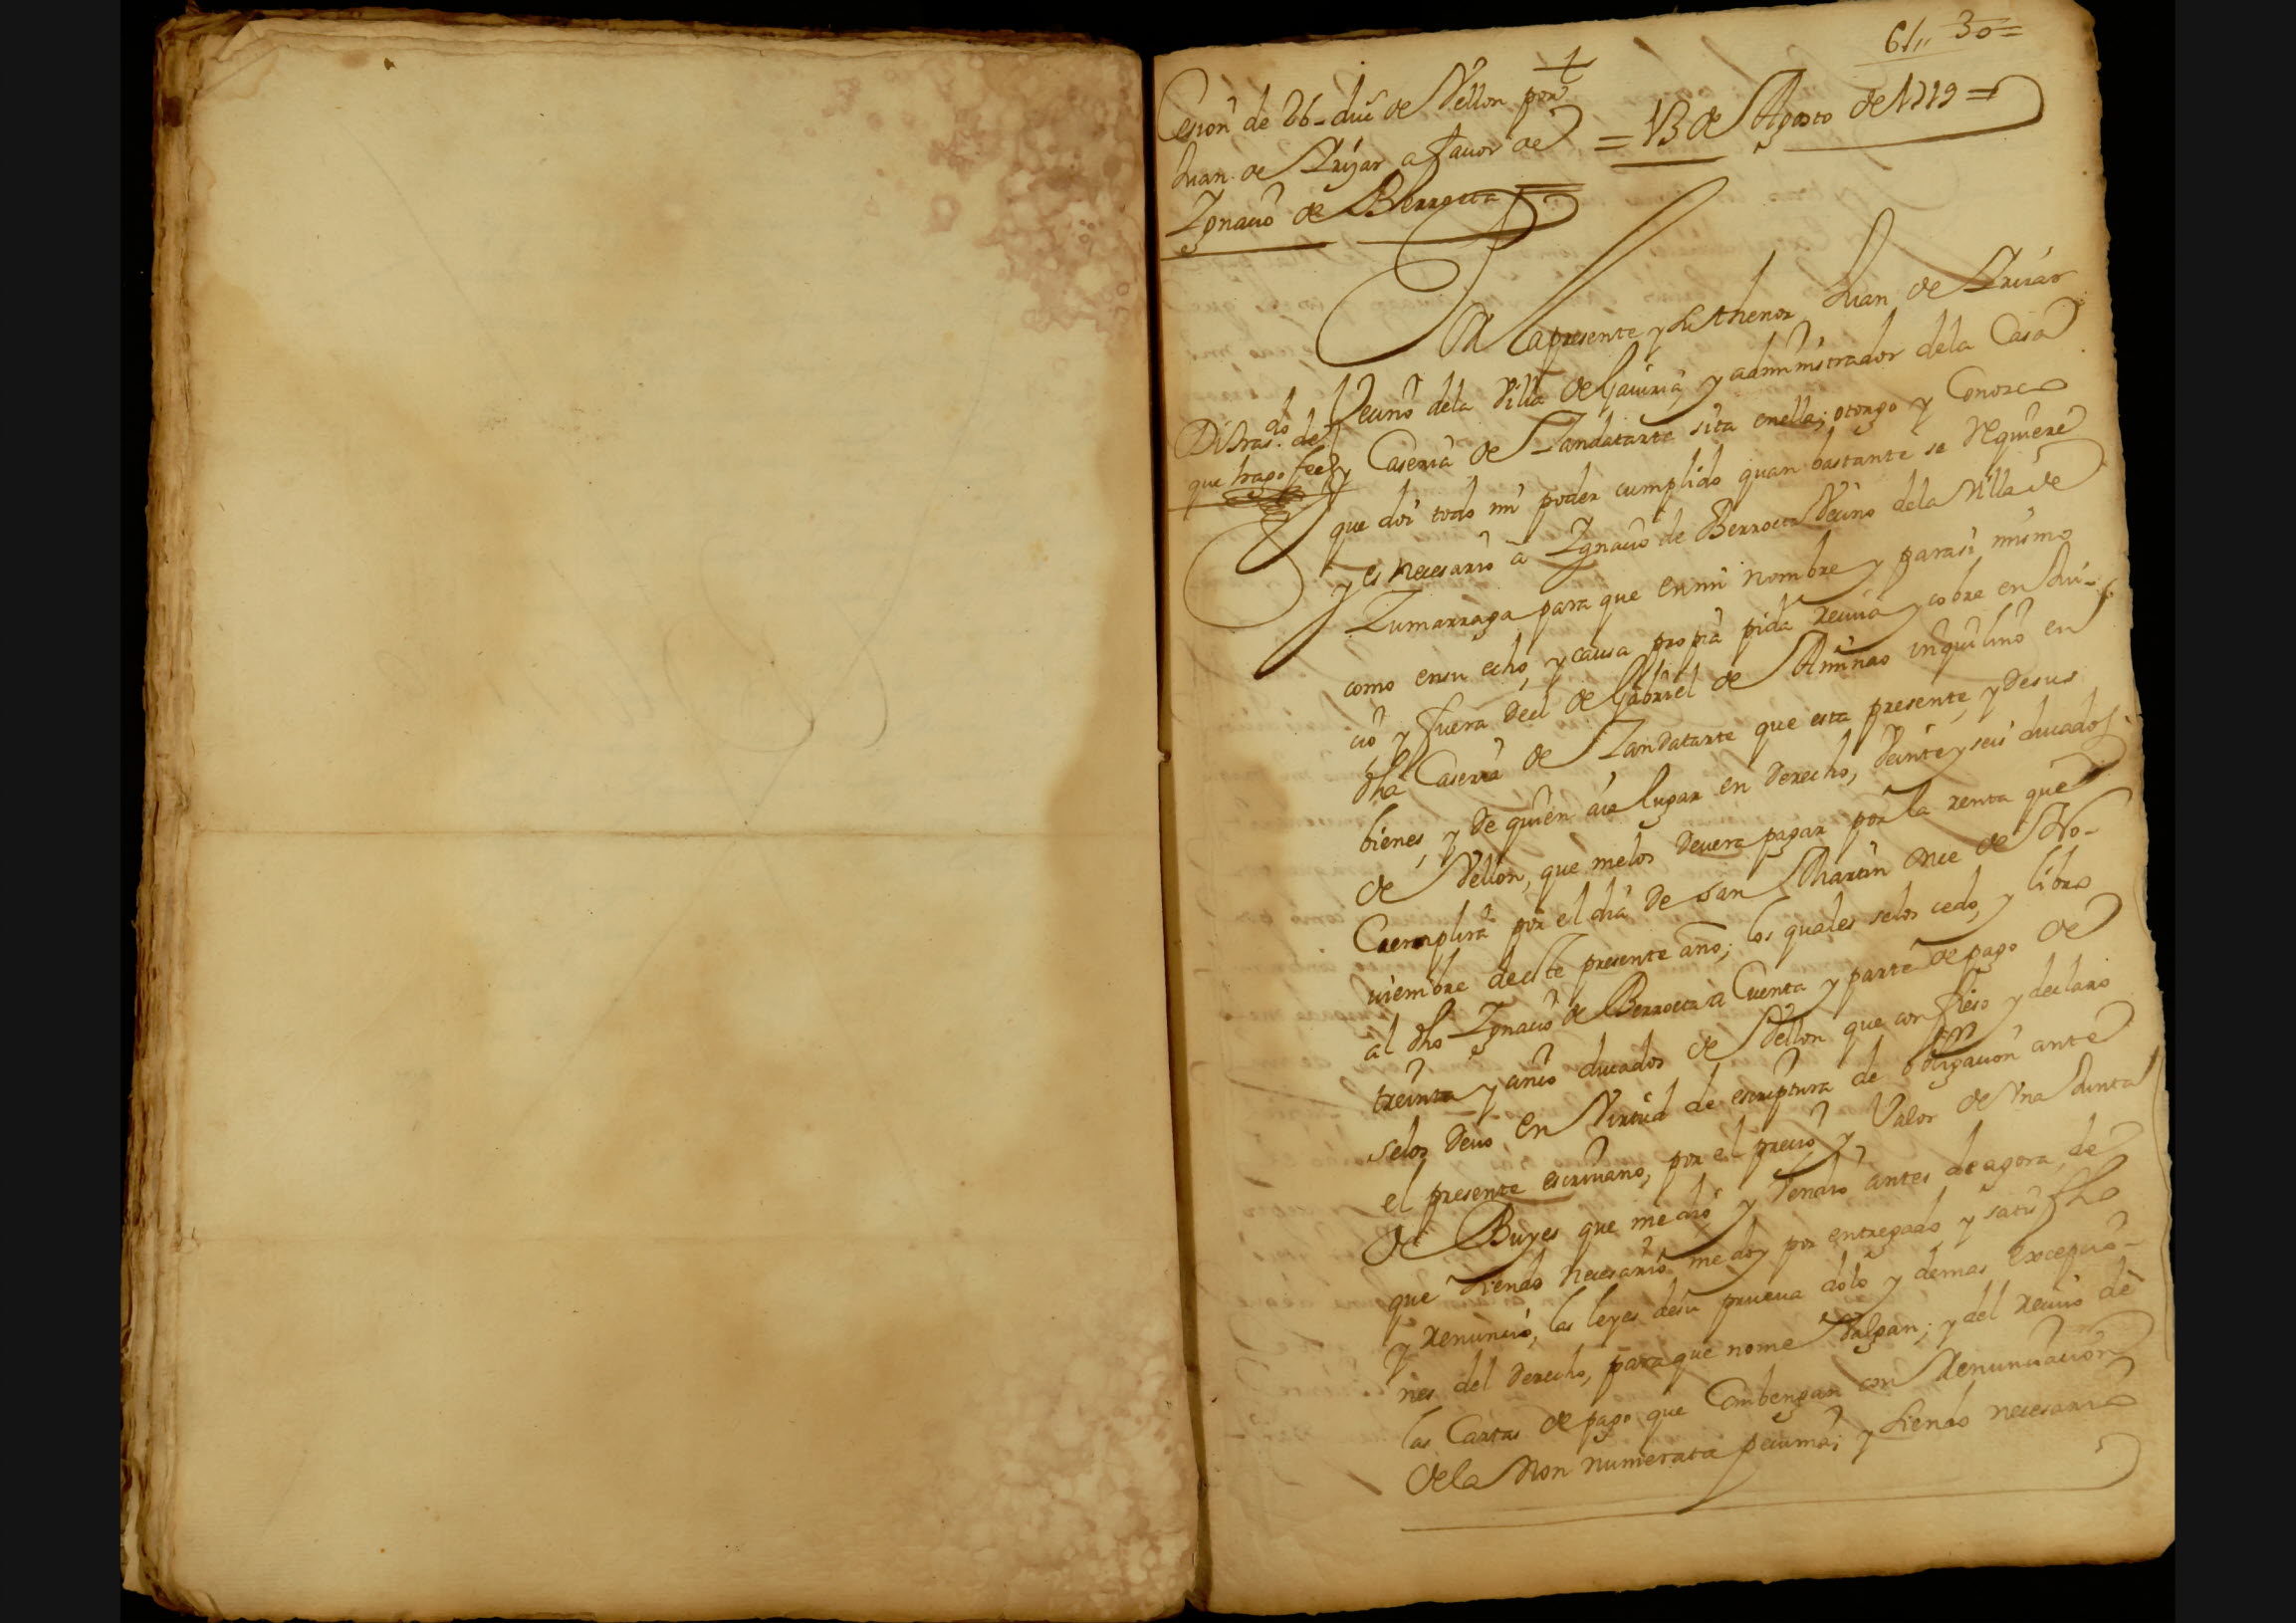 61,, 30=
Cesion de 26 duc.s de Vellon por
Juan de Arizar a favor de
Ygnacio de Berroeta
= 13 de Agosto de 1719 =
Por la presente y su thenor Juan de Arizar
Vecino dela Villa de Gaviria y administrador dela Casa
y Caseria de Zandatarte sita enella; otorgo y Conozco
que doi todo mi poder cumplido quan bastante se Requiere
y es necesario a Ygnacio de Berroeta Vecino dela Villa de
Zumarraga para que en mi nombre y parasi mismo
como ensu echo, y causa propia pida reciva y cobre en Jui-
cio y fuera deel de Gabriel de Aminao inquilino en
dha Caseria de Zandatarte que esta presente, y desus
bienes, y de quien aia lugar en derecho, Veinte y seis ducados
de Vellon, que melos devera pagar por la renta que
Caera por el dia de san Martin once de No-
viembre deeste presente año; los quales selos cedo, y libro
al dho Ygnacio de Berroeta a Cuenta y parte de pago de
treinta y cinco ducados de Vellon que confieso y declaro
selos devo en Virtud de escriptura de obligacion ante
el presente escrivano, por el precio y Valor de Vna Junta
de Buyes que me dio y Vendio antes de agora, de
que siendo necesario me doy por entregado y satisfho
y renuncio, las leyes desu prueva dolo y demas excepcio-
nes del derecho, paraque nome Valgan; y del recivo de
las Cartas de pago que Combengan con Renunciacion
dela Non numerata pecunia; y siendo necesario
Di tras.do de
que hago fee